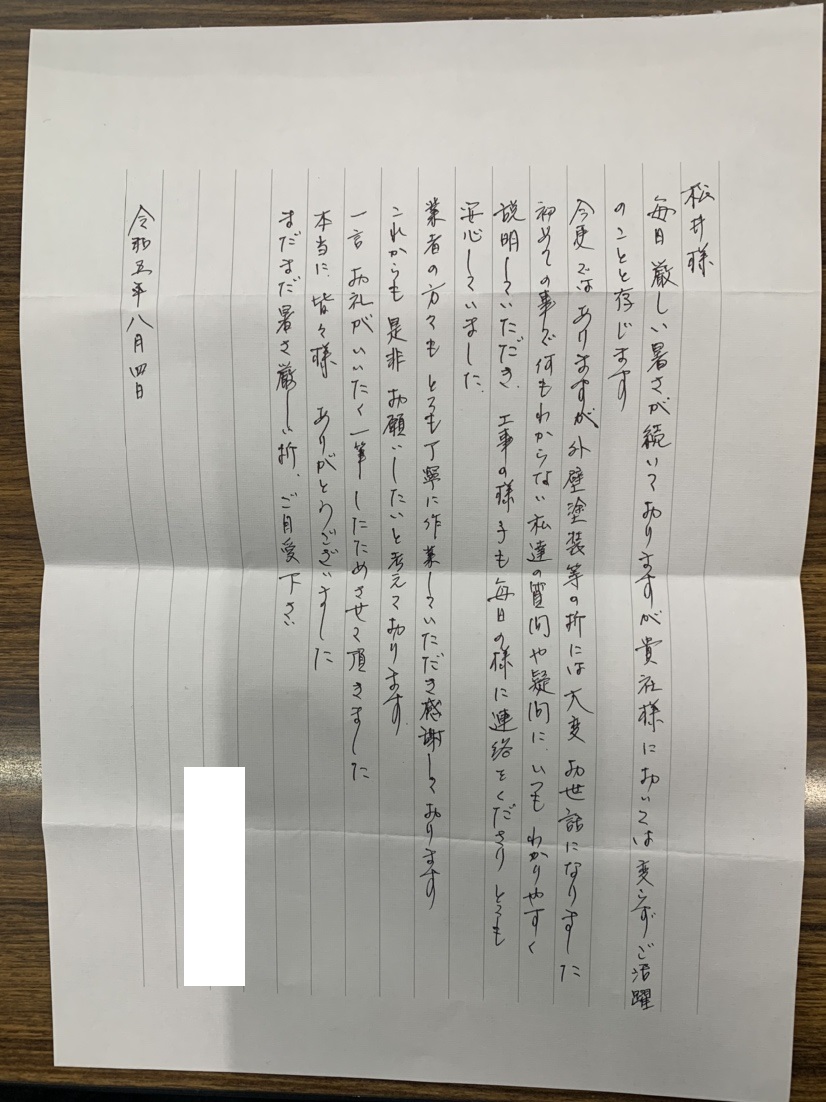 松井様
毎日厳しい暑さが続いておりますが貴社様においては変らずご活躍
のことと存じます
今更ではありますが外壁塗装等の折には大変お世話になりました
初めての事で何もわからない私達の質問や疑問に、いつもわかりやすく
説明していただき、工事の様子も毎日の様に連絡をくださりとても
安心していました。
業者の方々もとても丁寧に作業していただき感謝しております
これからも是非お願いしたいと考えております。
一言お礼がいいたく一筆したためさせて頂きました
本当に、皆々様ありがとうございました
まだまだ暑さ厳しい折、ご自愛下さい
令和五年八月四日